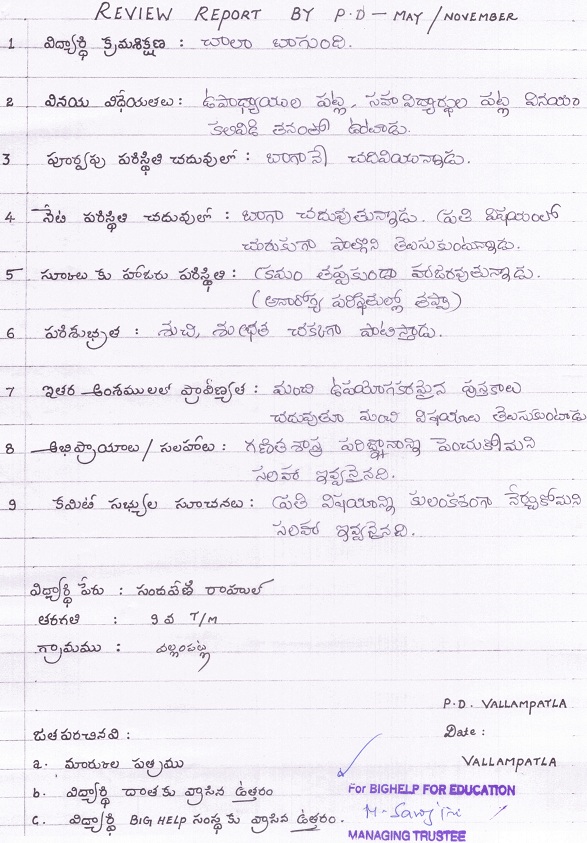 REVIEW REPORT BY P.D - MAY / NOVEMBER
1 విద్యార్థి క్రమశిక్షణ : చాలా బాగుంది.
2 వినయ విధేయతలు: ఉపాధ్యాయుల పట్ల, సహ విద్యార్థుల పట్ల వినయం
కలివిడి తనంతో ఉంటాడు.
3 పూర్వపు పరిస్థితి చదువులో : బాగానే చదివియున్నాడు.
4 నేటి పరిస్థితి చదువులో : బాగా చదువుతున్నాడు. ప్రతి విషయంలో
చురుకుగా పాల్గొని తెలుసుకుంటున్నాడు.
5 స్కూలు కు హాజరు పరిస్థితి : క్రమం తప్పకుండా హాజరవుతున్నాడు.
(అనారోగ్య పరిస్థితుల్లో తప్పా)
6 పరిశుభ్రత : శుచి, శుభ్రత చక్కగా పాటిస్తాడు.
7 ఇతర అంశములలో ప్రావీణ్యత : మంచి ఉపయోగకరమైన పుస్తకాలు
చదువుతూ మంచి విషయాలు తెలుసుకుంటాడు
8 అభిప్రాయాలు / సలహాలు : గణిత శాస్త్ర పరిజ్ఞానాన్ని పెంచుకోమని
సలహా ఇవ్వనైనది.
9 కమిటీ సభ్యుల సూచనలు : ప్రతి విషయాన్ని కులంకశంగా నేర్చుకోమని
సలహా ఇవ్వనైనది.
విద్యార్థి పేరు : సందవేణి రాహుల్
తరగతి : 9 వ T/M
గ్రామము : వల్లంపట్ల
P.D. VALLAMPATLA
జతపరచినవి :
Date :
a. మార్కుల పత్రము
VALLAMPATLA
b. విద్యార్థి దాతకు వ్రాసిన ఉత్తరం
For BIGHELP FOR EDUCATION
c. విద్యార్థి BIG HELP సంస్థకు వ్రాసిన ఉత్తరం.
MANAGING TRUSTEE